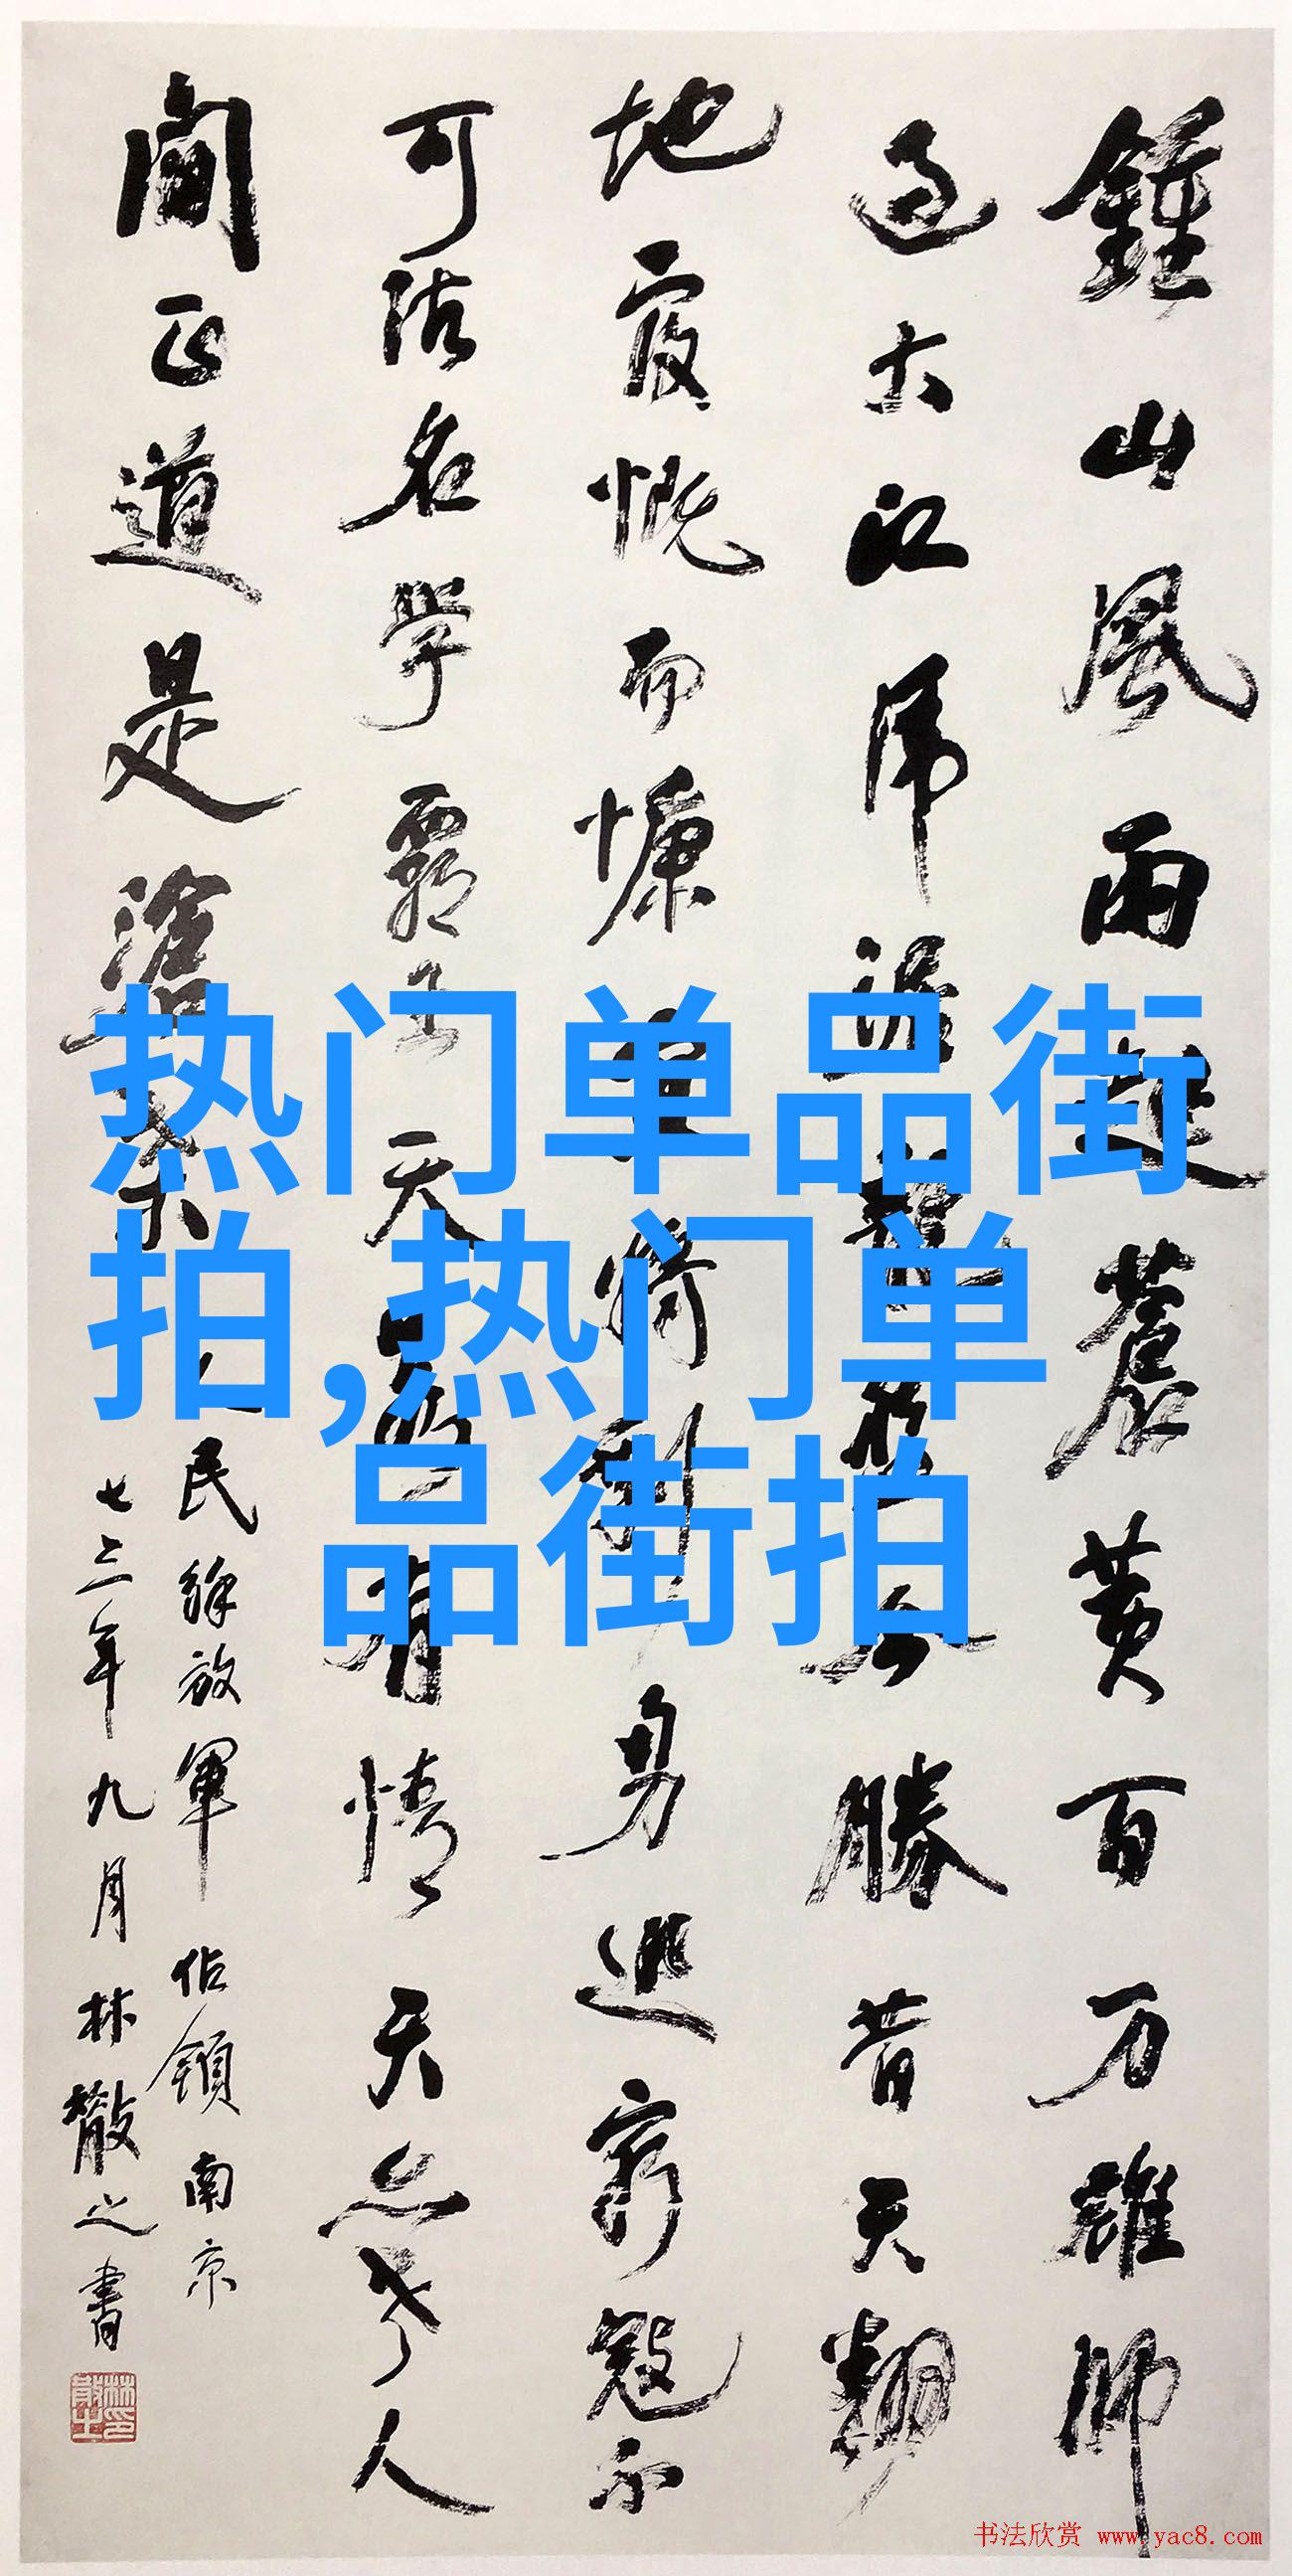 热门单品街
拍,热门单
品街拍
鍾山風雨起蒼黄百万雄師
過大江虎踞龍盤今勝昔天翻
地覆慨而慷将剩勇追窮寇不
可沽名學霸王天若有情天亦老人
間正道是滄桑
人民解放軍佔領南京
七三年九月林散之書
林散之印
书法欣赏 www.yac8.com